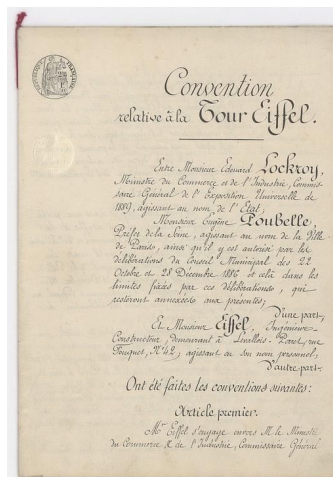 RÉPUBLIQUE FRANÇAISE
Convention
relative à la Tour Eiffel.
Entre Monsieur Edouard Lockroy,
Ministre du Commerce et de l'Industrie, Commis-
saire Général de l'Exposition Universelle de
1889, agissant au nom de l'État;
Monsieur Eugène Poubelle,
Préfet de la Seine, agissant au nom de la Ville
de Paris, ainsi qu'il y est autorisé par les
délibérations du Conseil Municipal des 22
Octobre et 28 Décembre 1886 et cela dans les
limites fixées par ces délibérations, qui
resteront annexées aux présentes;
D'une part,
Et Monsieur Eiffel, Ingénieur-
Constructeur, demeurant à Levallois-Perret, rue
Fouquet, N° 42, agissant en son nom personnel,
D'autre part.
Ont été faites les conventions suivantes:
Article premier.
Mr Eiffel s'engage envers M. le Ministre
du Commerce & de l'Industrie, Commissaire Général